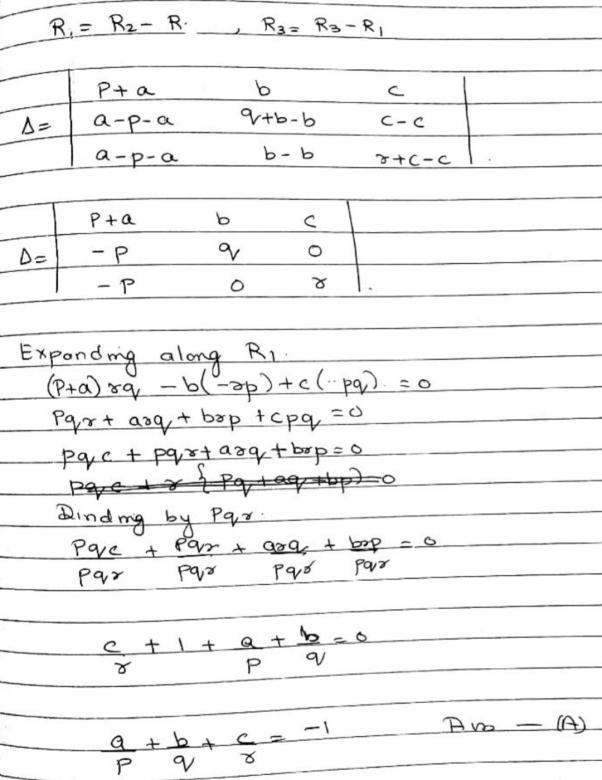 R₁ = R₂ - R. , R₃ = R₃ - R₁
Δ= | P+a b c |
| a-p-a q+b-b c-c |
| a-p-a b-b r+c-c | .
Δ= | P+a b c |
| -P q 0 |
| -P 0 r | .
Expanding along R₁.
(P+a) rq - b(-rp) + c(··pq) = 0
Pqr + arq + brp + cpq = 0
pqc + pqr + arq + brp = 0
pqc + r { Pq + aq + bp) = 0
Dinding by Pqr.
Pqc/pqr + Pqr/pqr + arq/pqr + brp/pqr = 0
c/r + 1 + a/p + b/q = 0
a/p + b/q + c/r = -1 Ans — (A)